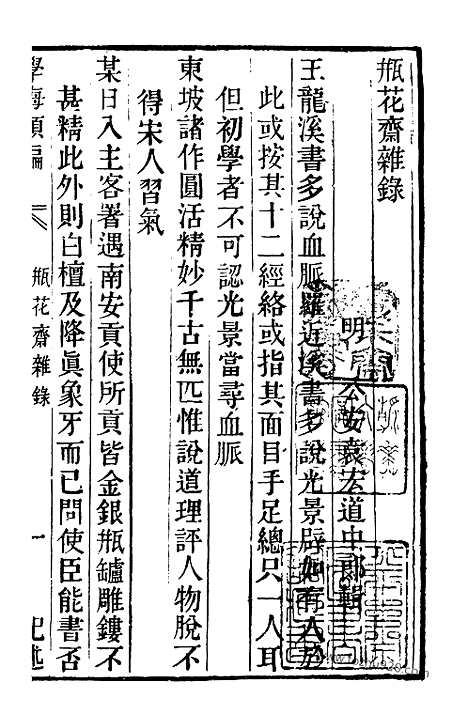 瓶花齋雜錄
明　公安袁宏道中郎輯
王龍溪書多說血脈羅近溪書多說光景辟如有人於
此或按其十二經絡或指其面目手足總只一人耳
但初學者不可認光景當尋血脈
東坡諸作圓活精妙千古無匹惟說道理評人物脫不
得宋人習氣
某日入主客署遇南安貢使所貢皆金銀瓶罏雕鏤不
甚精此外則白檀及降眞象牙而已問使臣能書否
學海類編
瓶花齋雜錄
一